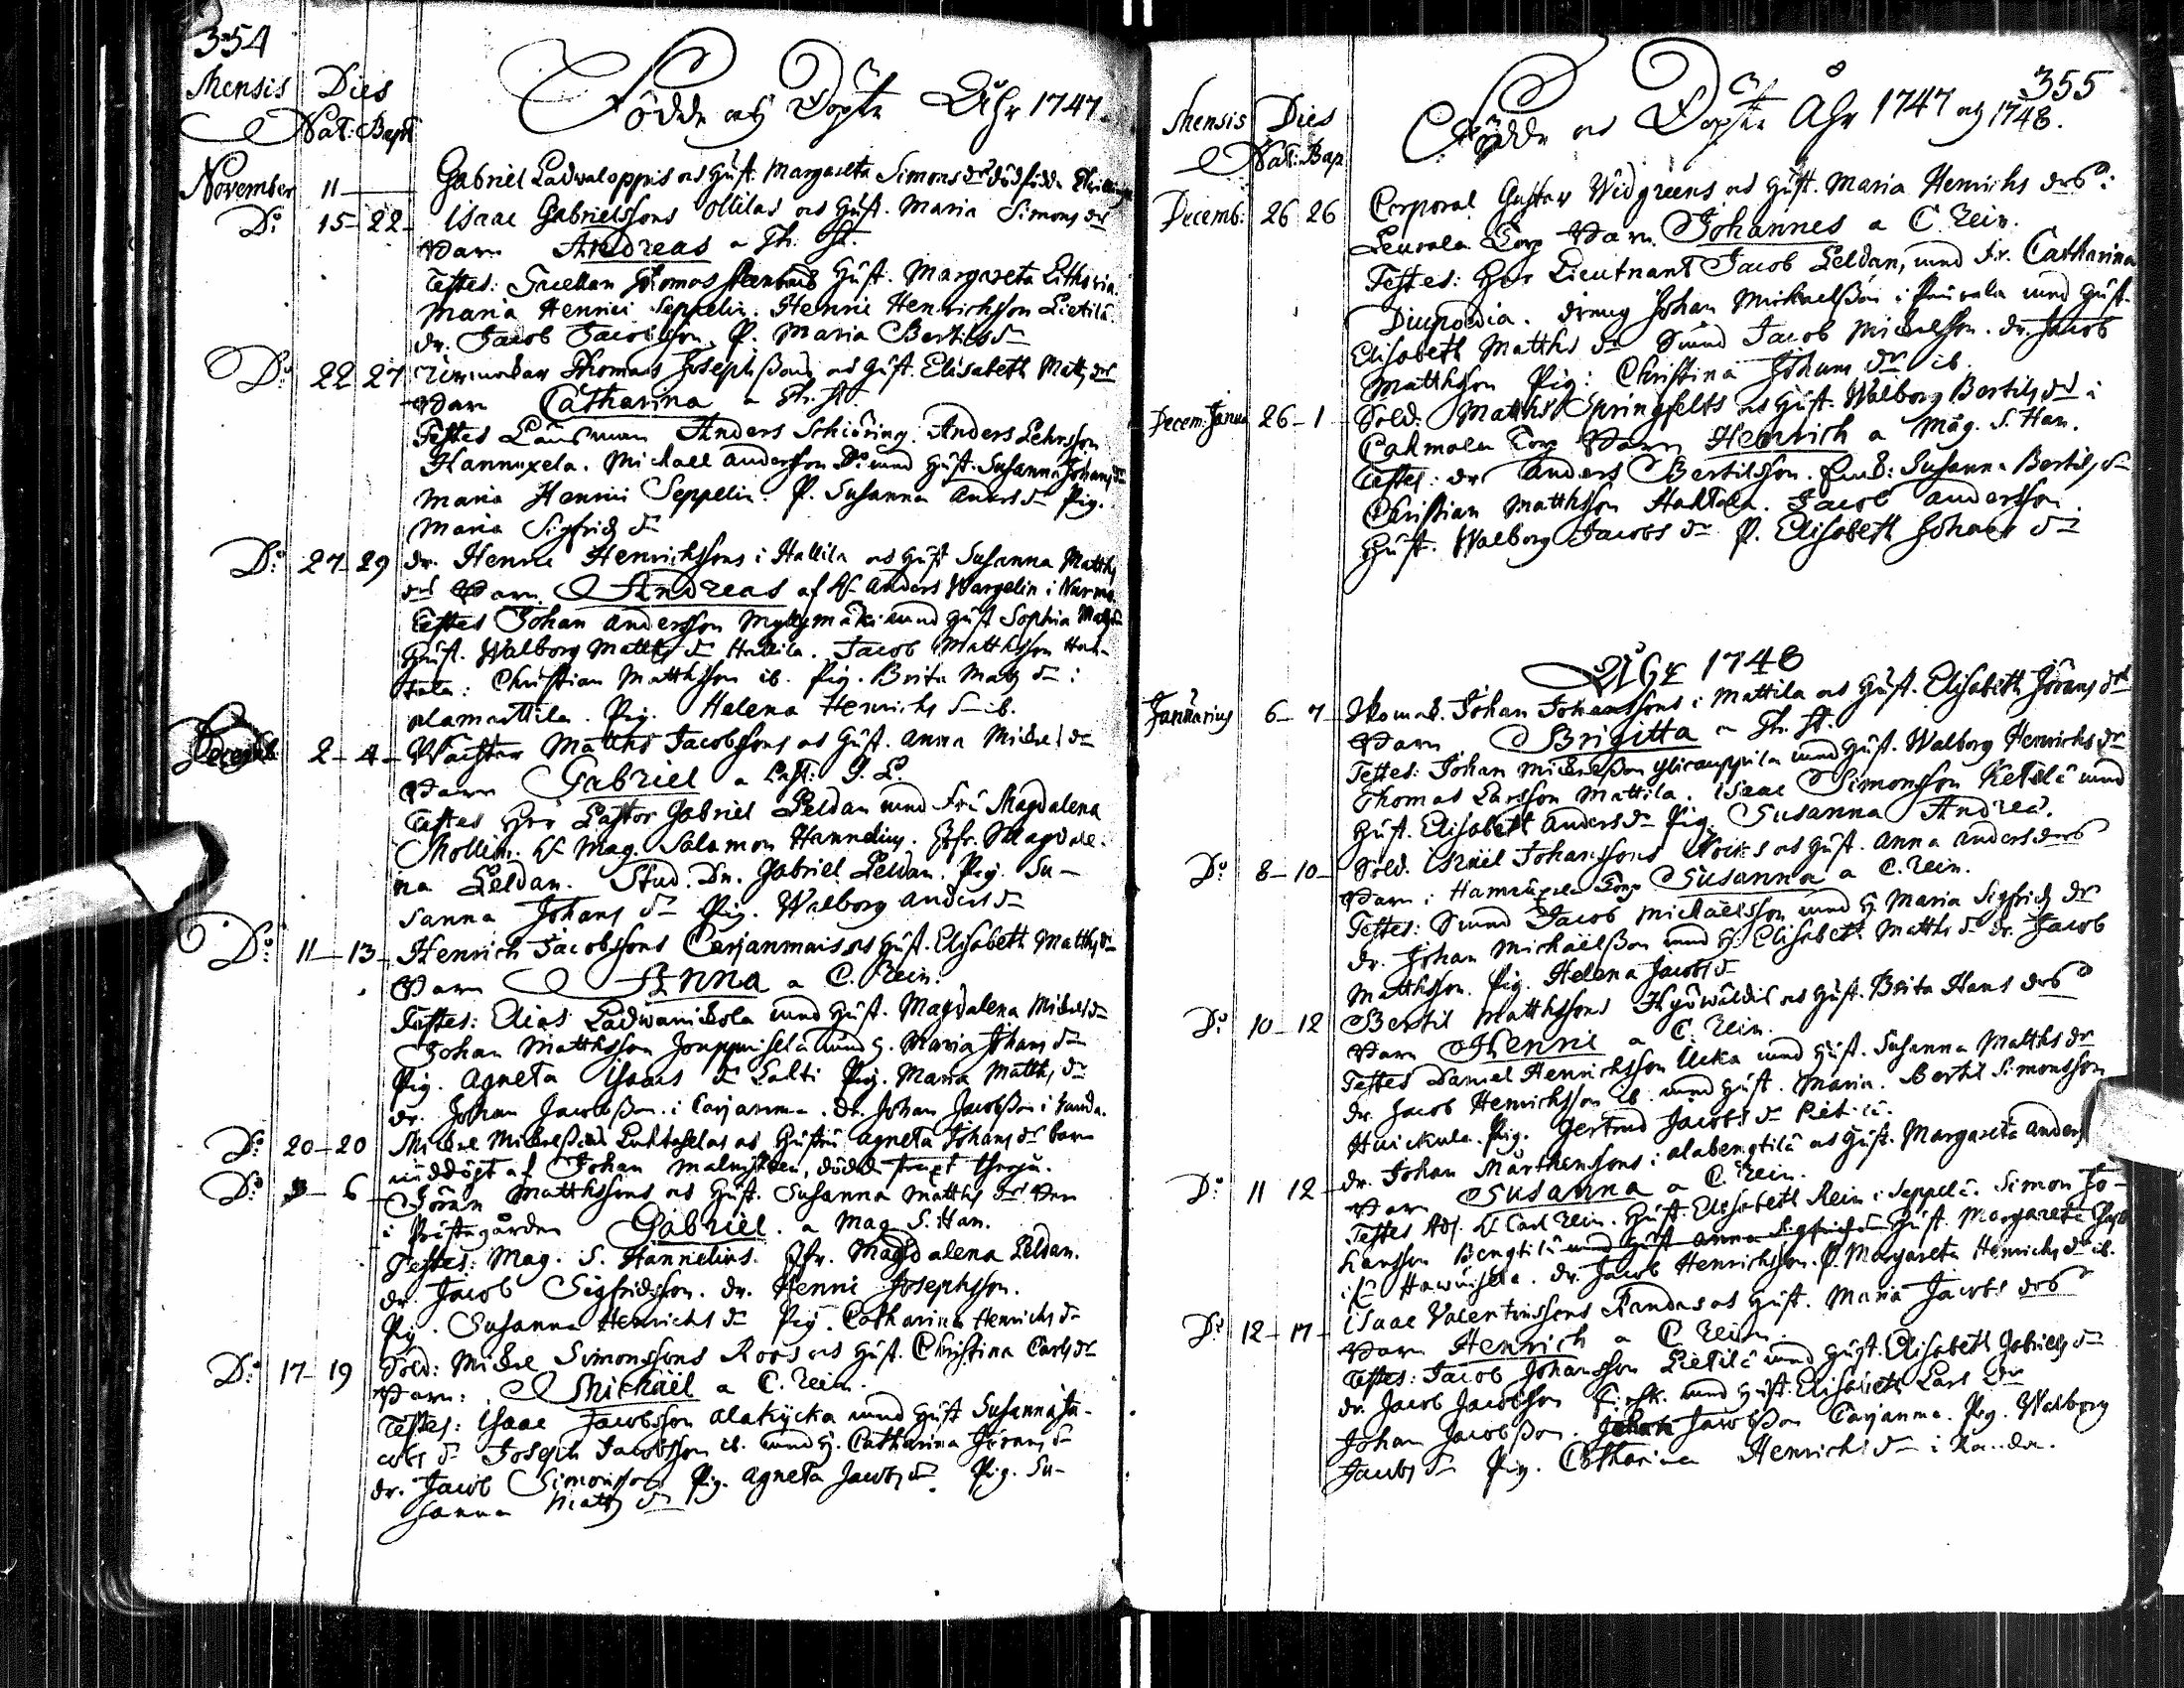 354
Mensis Dies
Nat: Bapt
Födde och Döpte Åhr 1747.
November 11 Gabriel Ladwaloppis och Hust. Margareta Simons dr dödfödde
Do 15-22 Isaac Gabrielssons Ollilas och Hust. Maria Simons dr
Barn Andreas a Th. St.
Testes: Thomas Hust. Margareta
Maria Henrici Seppelin. Henric Henrichsson Lietilä
dr. Jacob Jacobsson. P. Maria Bertils dr
Do 22 27 Thomas Josephssons och Hust. Elisabeth Matts dr
Barn Catharina a Th. St.
Testes Länsman Anders Schiöring. Anders Lehrsson
Hannuxela. Michael Andersson Do med Hust. Susanna Johans dr
Maria Henrici Seppelin. P. Susanna Anders dr Pig.
Maria Sigfrids dr
Do 27-29 dr. Henric Henrichssons i Hallila och Hust Susanna Matths
dr Barn Andreas af H. Anders Wargelin i
Testes Johan Andersson Myllymäki med Hust Sophia
Hust. Walborg Matths dr Hallila. Jacob Matthsson Hak-
tala: Christian Matthsson ib. Pig. Brita Mats dr i
alamattila. Pig. Helena Henrichs dr ib.
December 2-4 Wächter Matths Jacobssons och Hust. Anna Michels dr
Barn Gabriel a Past: G. L.
Testes Herr Pastor Gabriel Peldan med Fru Magdalena
Mollin. H. Mag. Salamon Hannelius. Jfr. Magdale-
na Peldan. Stud. Dn. Gabriel Peldan. Pig. Su-
sanna Johans dr Pig. Walborg Anders dr
Do 11-13 Henrich Jacobssons Carjanmais och Hust. Elisabeth Matths dr
Barn Anna a C. Rein.
Testes: Elias Ladwanickola med Hust. Magdalena Michels dr
Johan Matthsson Jouppinselä med H. Maria Johans dr
Pig. Agneta Isaacs dr Lakti Pig. Maria Matths dr
dr. Johan Jacobsson i Carjanma. dr. Johan Jacobsson i Randa.
Do 20-20 Michel Michelssons Luhtaselas och Hustru Agneta Johans dr barn
nöddöpt af Johan Malmsteen, dödde straxt therpå.
Do 5-6 Jöran Matthssons och Hust. Susanna Matths dr Barn
i Prästegården Gabriel. a Mag S. Han.
Testes: Mag. S. Hannelius. Jfr. Magdalena Peldan.
dr. Jacob Sigfridsson. dr. Henric Josephsson.
Pig. Susanna Henrichs dr Pig. Catharina Henrichs dr
Do 17-19 Sold: Michel Simonssons Roos och Hust. Christina Carls dr
Barn: Michaël a C. Rein.
Testes: Isaac Jacobsson Alakycka med Hust Susanna Ja-
cobs dr Joseph Jacobsson ib. med H. Catharina Jörans dr
dr. Jacob Simonsson Pig. Agneta Jacobs dr Pig. Su-
sanna Matts dr
355
Mensis Dies
Nat: Bap
Födde och Döpte Åhr 1747 och 1748.
Decemb: 26 26 Corporal Gustav Widgreens och Hust. Maria Henrichs drs
Leurala Torp Barn Johannes a C. Rein.
Testes: Herr Lieutnant Jacob Peldan, med Fr. Catharina
Diupoedia. Dreng Johan Michaelsson i Peurala med Hust.
Elisabeth Matths dr Smed Jacob Michelsson. dr. Jacob
Matthsson Pig: Christina Johans dr ib.
Decem: Janua 26-1 Sold. Matths Springfelts och Hust. Walborg Bertils dr i
Cakmala Torp Barn Henrich a Mag. S. Han.
Testes: dr Anders Bertilsson. Susanna Bertils dr
Christian Matthsson Haktala. Jacob Andersson.
Hust. Walborg Jacobs dr P. Elisabeth Johans dr
Åhr 1748
Januarius 6-7 Skomak. Johan Johanssons i Mattila och Hust. Elisabeth Jörans dr
Barn Brigitta a Th. St.
Testes: Johan Michelsson med Hust. Walborg Henrichs dr
Thomas Larsson Mattila. Isaac Simonsson Ketola med
Hust. Elisabett Anders dr Pig. Susanna Andreæ.
Do 8-10 Sold. Israël Johanssons och Hust. Anna Anders drs
Barn i Torp Susanna a C. Rein.
Testes: Smed Jacob Michaëlsson med H Maria Sigfrids dr
dr. Johan Michaëlsson med H. Elisabeth Matths dr dr. Jacob
Matthsson. Pig. Helena Jacobs dr
Do 10-12 Bertil Matthssons Hyöwäldis och Hust. Brita Hans drs
Barn Henric a C. Rein.
Testes Daniel Henrichsson Ucka med Hust. Susanna Matths dr
dr. Jacob Henrichsson ib. med Hust. Maria. Bertil Simonsson
Huickula. Pig. Gertrud Jacobs dr
Do 11 12 dr. Johan Mårthenssons i alabengtilä och Hust. Margareta Anders
Barn Susanna a C. Rein.
Testes Adj. H. Carl Rein. Hust. Elisabeth Rein i Seppelä. Simon Jo-
hansson Bengtilä med Hust Anna Sigfrids dr Hust. Margareta
dr. Jacob Henrichsson. P. Margareta Henrichs dr ib.
Do 12-17 Isaac Valentinssons Randas och Hust. Maria Jacobs drs
Barn Henrich a C. Rein.
Testes: Jacob Johansson Lietilä med Hust. Elisabeth Gabriels dr
dr. Jacob Jacobsson med Hust: Elisabeth Lars dr
Johan Jacobsson. Johan Jacobsson Carjanma. Pig. Walborg
Jacobs dr Pig. Catharina Henrichs dr i Randa.